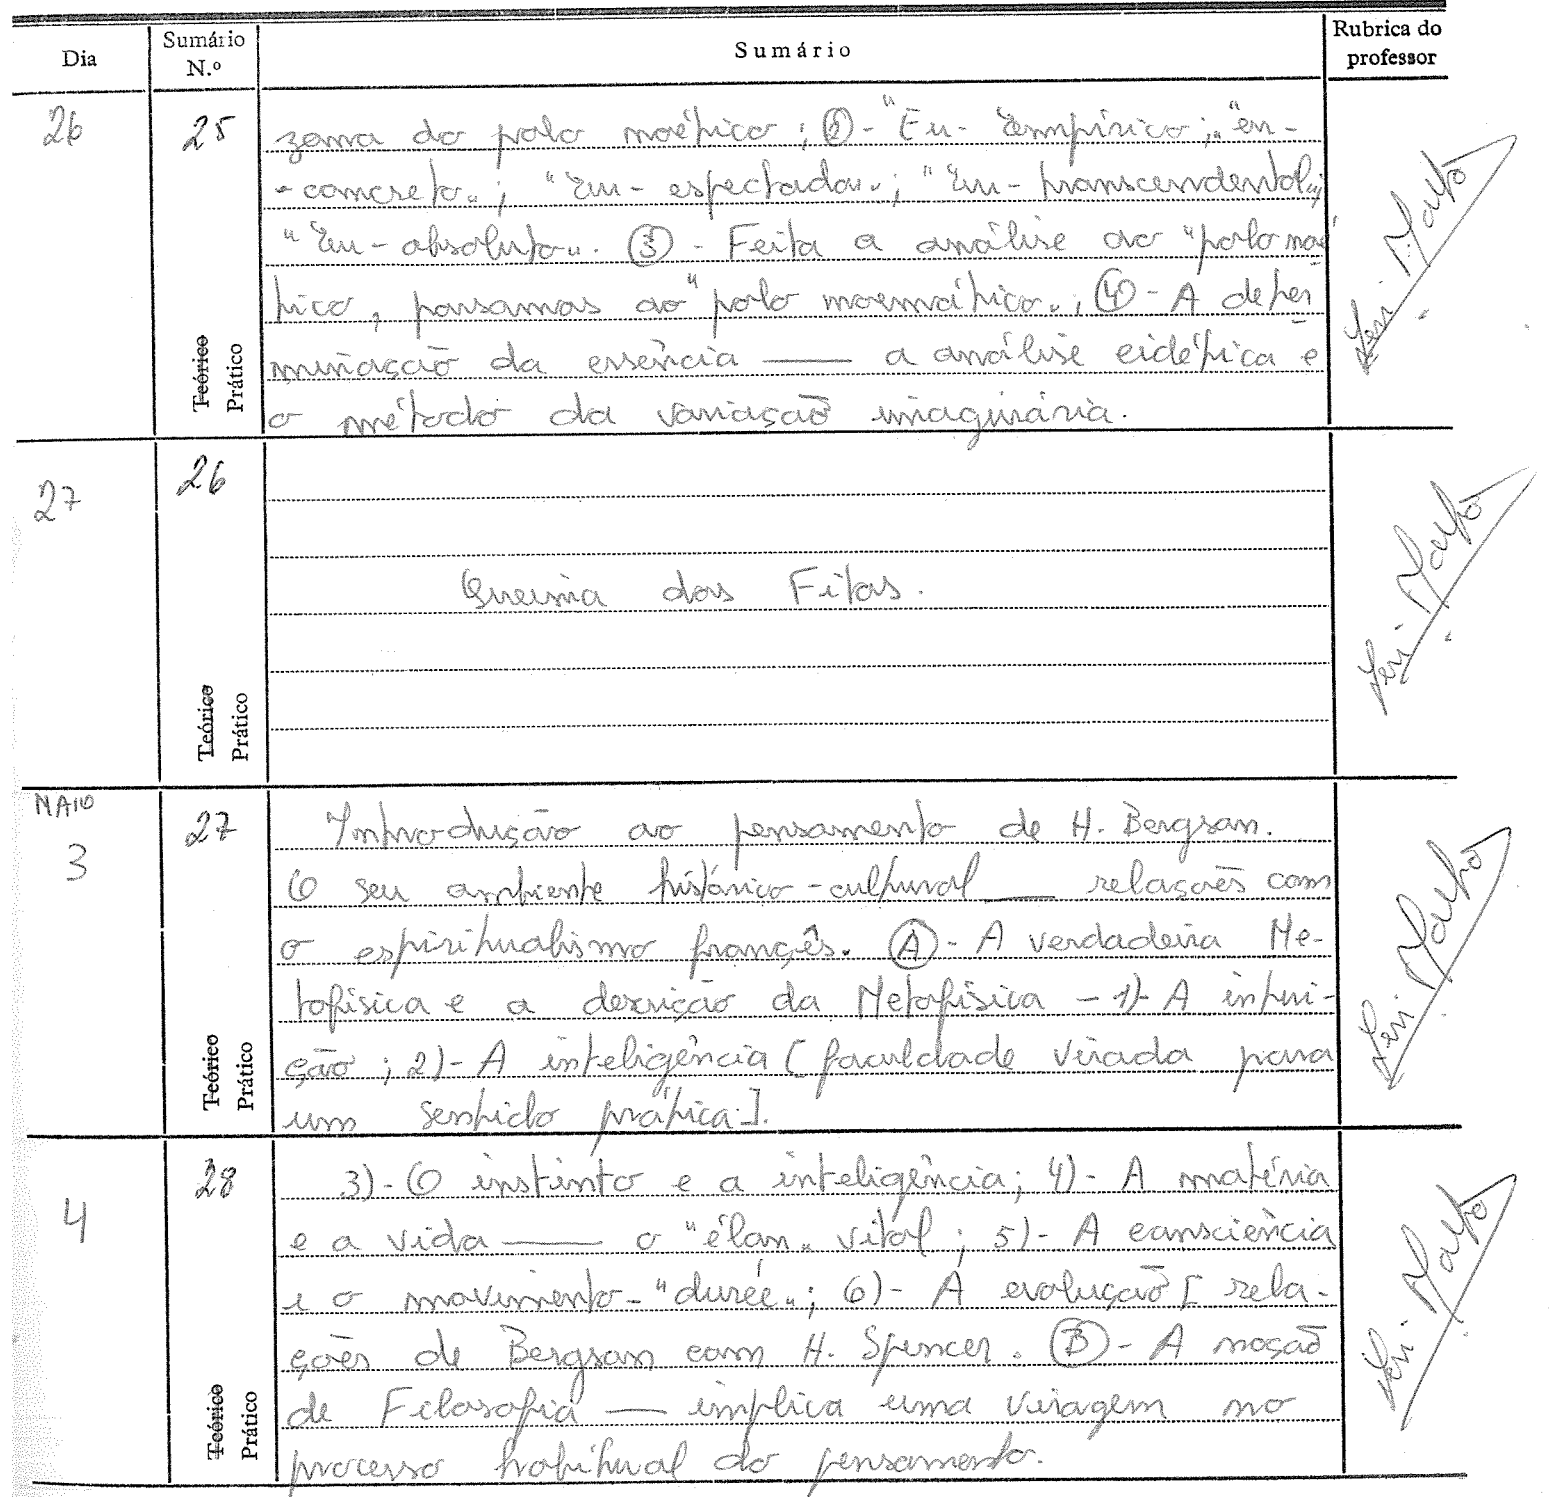 Dia
Sumário
N.º
Sumário
Rubrica do
professor
26
25
zema do polo noético; ② - "Eu - Empírico; "eu-
- concreto"; "Eu - espectador"; "Eu - transcendental";
"Eu - absoluto". ③ - Feita a análise ao "polo noé
tico, passamos ao "polo noemático"; ④ - A deter
minação da essência — a análise eidética e
o método da variação imaginária.
Teórico
Prático
27
26
Queima das Fitas.
Teórico
Prático
MAIO
3
27
Introdução ao pensamento de H. Bergson.
O seu ambiente histórico-cultural — relações com
o espiritualismo francês. Ⓐ - A verdadeira Me-
tafísica e a descrição da Metafísica - 1)- A intui-
ção; 2)- A inteligência [faculdade virada para
um sentido prático].
Teórico
Prático
4
28
3)- O instinto e a inteligência; 4)- A matéria
e a vida — o "élan" vital; 5)- A consciência
e o movimento - "durée"; 6)- A evolução [rela-
ções de Bergson com H. Spencer. Ⓑ - A noção
de Filosofia — implica uma viragem no
processo habitual do pensamento.
Teórico
Prático